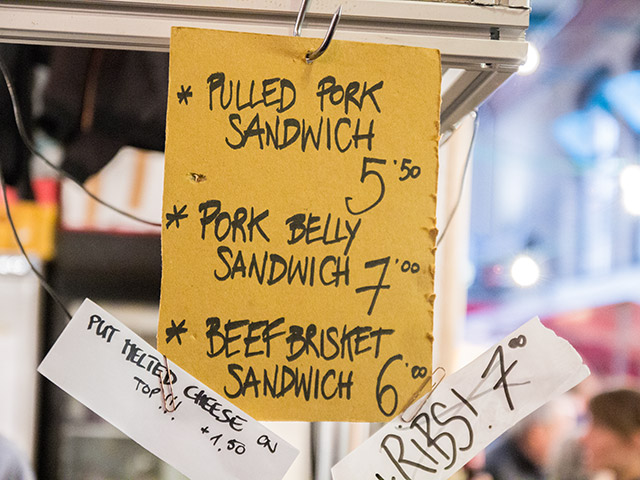 * PULLED PORK
SANDWICH
5'50
* PORK BELLY
SANDWICH 7'00
* BEEF BRISKET
SANDWICH 6'00
PUT MELTED CHEESE ON
TOP!!! +1.50
RIBS! 7'00